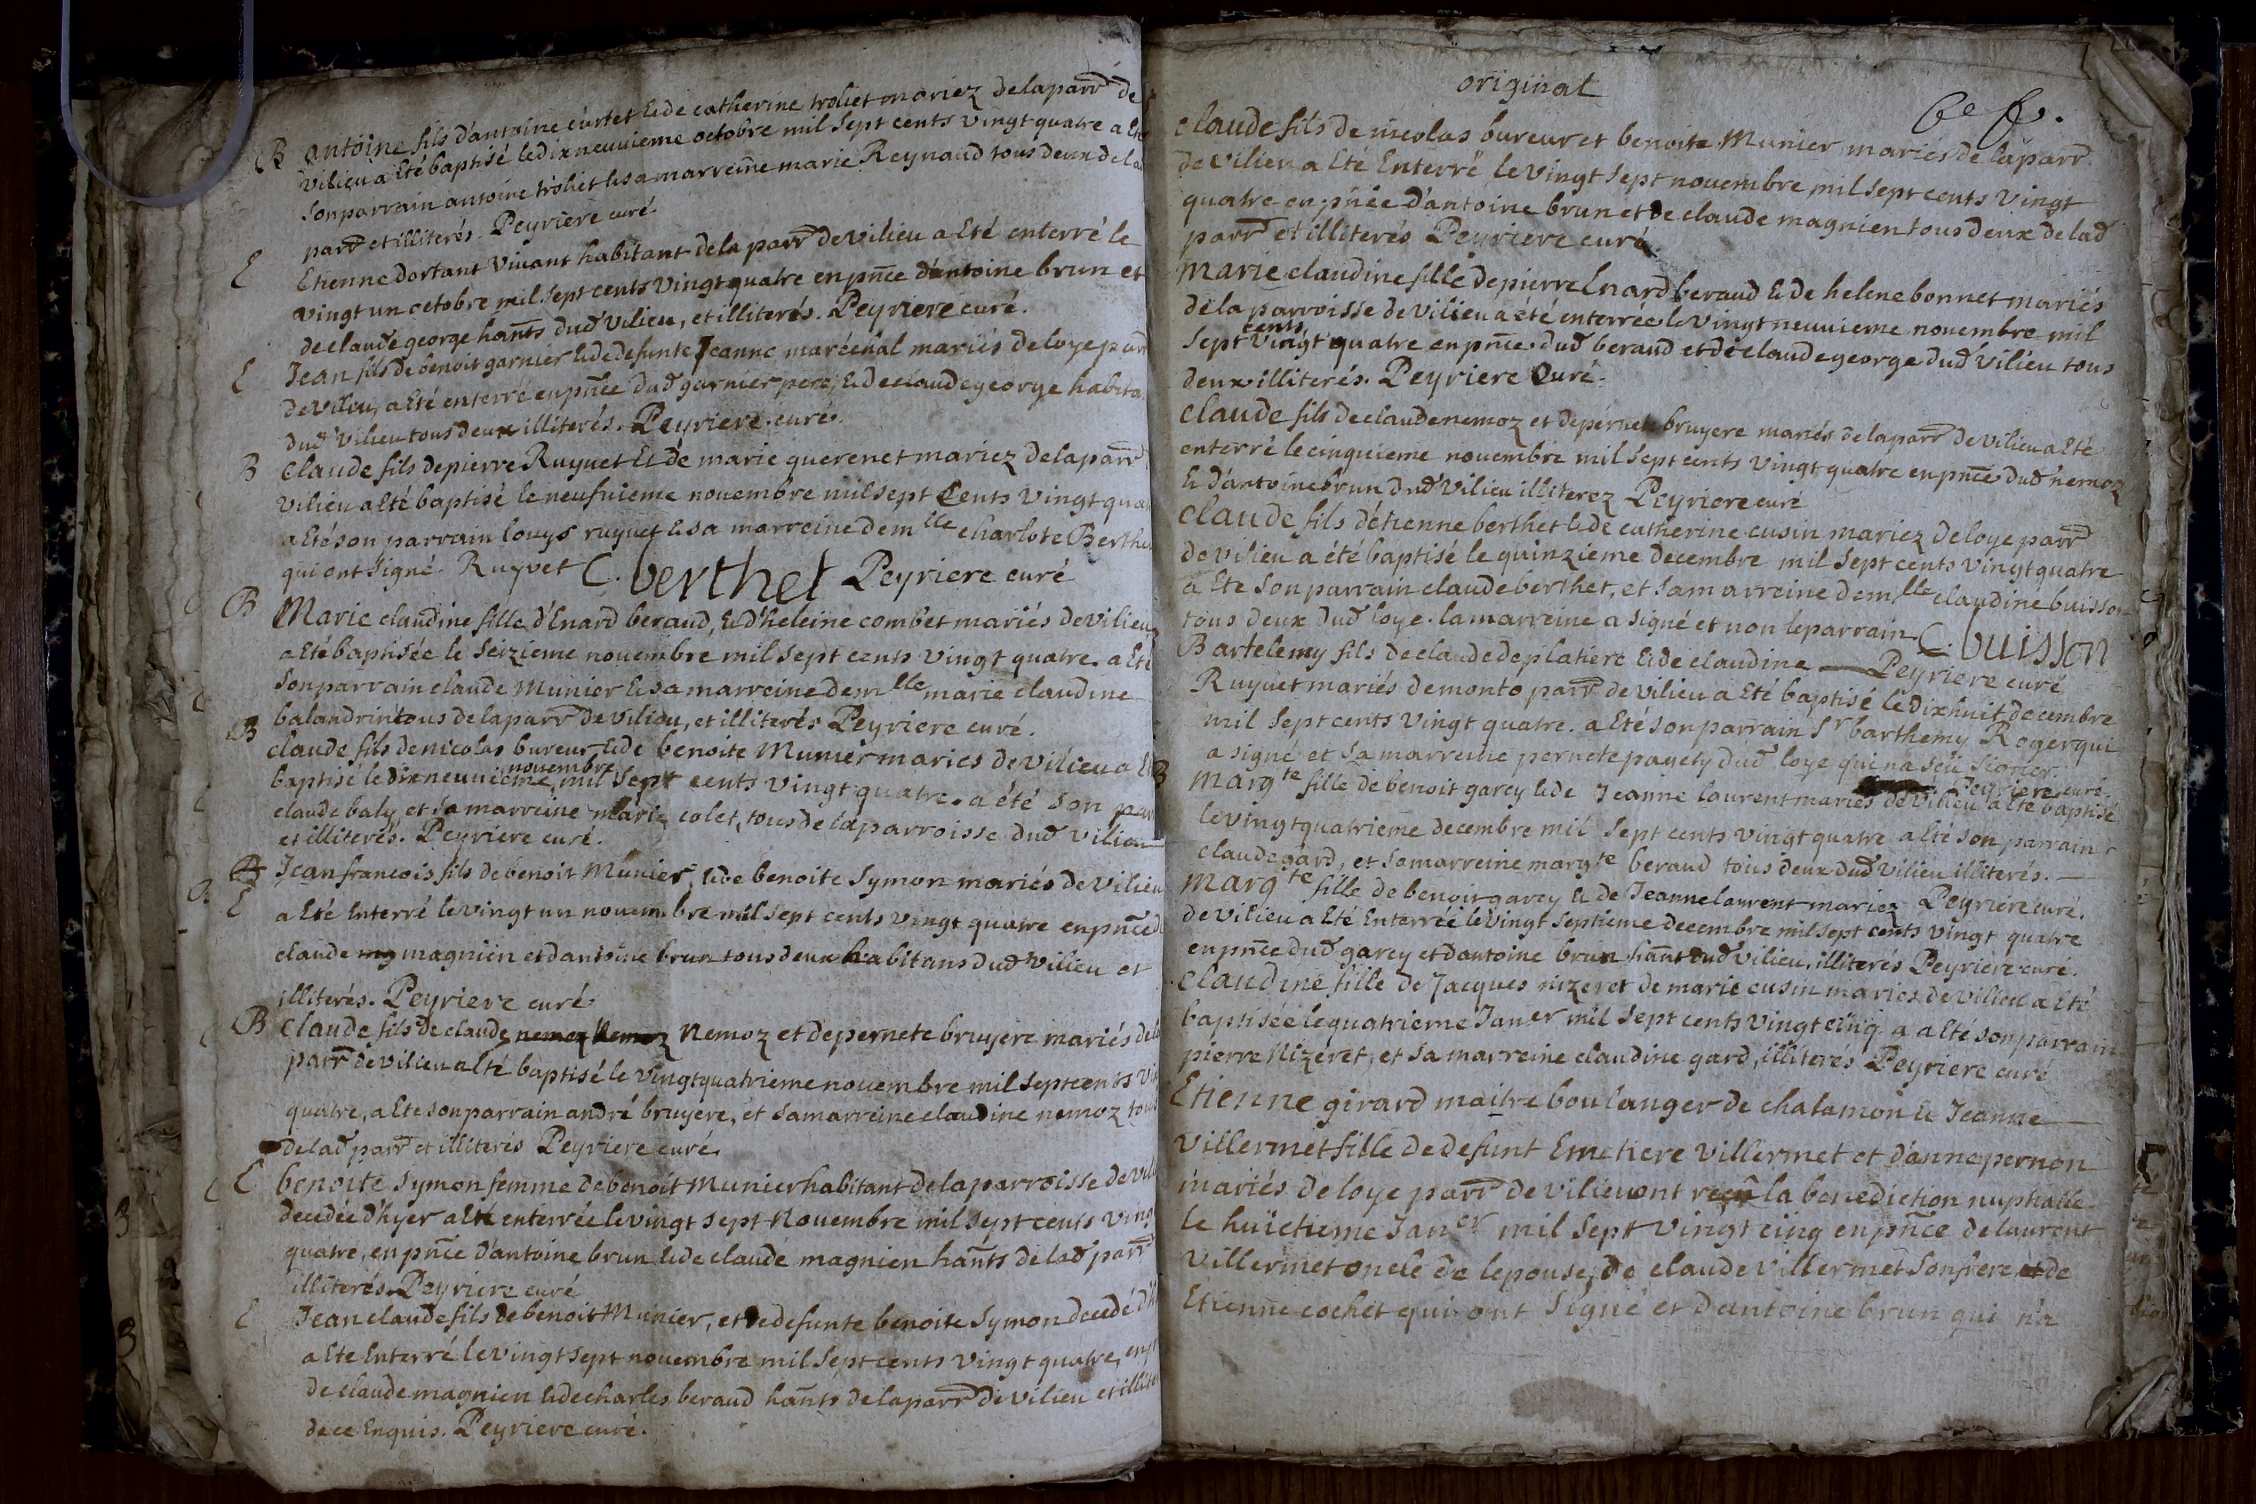 B antoine fils d'antoine curtet & de catherine troliet mariez de la parr de
vilieu a Eté baptisé le dixneuvieme octobre mil sept cents vingt quatre a Eté
son parrain antoine troliet & sa marreine marie Reynaud tous deux de lad
parr et illiterés. Peyriere curé.
E Etienne dortant vivant habitant de la parr de vilieu a Eté enterré le
vingt un octobre mil sept cents vingt quatre en pnce d'antoine brun et
de claude george hants dud vilieu, et illiterés. Peyriere curé.
E Jean fils de benoit garnier & de defunte Jeanne maréchal mariés de loye parr
de vilieu, a Eté enterré en pnce dud garnier pere, & de claude george habita
dud vilieu tous deux illiterés. Peyriere curé.
B claude fils de pierre Ruyuet Et de marie querenet mariez de la parr
vilieu a Eté baptisé le neufvieme novembre mil sept Cents vingt quat
a Eté son parrain louys ruyuet & sa marreine demlle charlote Berthe
qui ont signé. Ruyvet C. berthet Peyriere curé
B Marie claudine fille d'Enard beraud, & d'heleine combet mariés de vilieu
a Eté baptisée le seizieme novembre mil sept cents vingt quatre. a Eté
son parrain claude Munier & sa marreine demlle marie claudine
balandrin tous de la parr de vilieu, et illiterés Peyriere curé.
B claude fils de nicolas bureur & de benoite Munier mariés de vilieu a Eté
baptisé le dixneuvieme novembre mil sept cents vingt quatre. a été son parr
claude baly, et sa marreine marie colet, tous de la parroisse dud vilieu
et illiterés. Peyriere curé.
E Jean francois fils de benoit Munier, & de benoite Symon mariés de vilieu
a Eté Enterré le vingt un novembre mil sept cents vingt quatre en pnce d
claude mg magnien et d'antoine brun tous deux habitans dud vilieu et
illiterés. Peyriere curé.
B Claude fils de claude nemoz nemoz Nemoz et de pernete bruyere mariés de la
parr de vilieu a Eté baptisé le vingtquatrieme novembre mil sept cents vi
quatre, a Ete son parrain andré bruyere, et sa marreine claudine nemoz tous
de lad parr et illiterés Peyriere curé.
E benoite Symon femme de benoit Munier habitant de la parroisse de vili
decedée d'hyer a Eté enterrée le vingt sept Novembre mil sept cents ving
quatre, en pnce d'antoine brun & de claude magnien hants de lad parr
illiterés Peyriere curé
E Jean claude fils de benoit Munier, et de defunte benoite Symon decedé d'h
a Ete Enterré le vingt sept novembre mil sept cents vingt quatre, en p
de claude magnien & de charles beraud hants de la parr de vilieu et illite
de ce Enquis. Peyriere curé.
original
claude fils de nicolas bureur et benoite Munier mariés de la parr
de vilieu a Eté Enterré le vingt sept novembre mil sept cents vingt
quatre en pnce d'antoine brun et de claude magnien tous deux de lad
parr et illiterés Peyriere curé
Marie claudine fille de pierre Enard beraud & de helene bonnet mariés
de la parroisse de vilieu a été enterrée le vingt neuvieme novembre mil
sept cents vingt quatre en pnce dud beraud et de claude george dud vilieu tous
deux illiterés. Peyriere Curé.
Claude fils de claude nemoz et de pernete bruyere mariés de la parr de vilieu a Eté
enterré le cinquieme novembre mil sept cents vingt quatre en pnce dud nemoz
& d'antoine brun dud vilieu illiterez Peyriere curé
Claude fils d'étienne berthet & de catherine cusin mariez de loye parr
de vilieu a été baptisé le quinzieme decembre mil sept cents vingt quatre
a Ete son parrain claude berthet, et sa marreine demlle claudine buisson
tous deux dud loye. la marreine a signé et non le parrain C. buisson
Bartelemy fils de claude de platiere & de claudine Peyriere curé
Ruyuet mariés de monto parr de vilieu a Eté baptisé le dixhuit decembre
mil sept cents vingt quatre. a Eté son parrain Sr barthemy Roger qui
a signé et sa marreine pernete pagety dud loye qui na seu signer.
Peyriere curé.
B margte fille de benoit garcy & de Jeanne laurent mariés de vilieu a Eté baptisé
le vingtquatrieme decembre mil sept cents vingt quatre a Eté son parrain
claude gard, et sa marreine margte beraud tous deux dud vilieu illiterés.
Margte fille de benoit garcy & de Jeanne laurent mariez Peyriere curé.
de vilieu a Eté Enterrée le vingt septieme decembre mil sept cents vingt quatre
en pnce dud garcy et d'antoine brun hant dud vilieu, illiterés Peyriere curé.
Claudine fille de Jacques nizeret de marie cusin mariés de vilieu a Eté
baptisée le quatrieme Janer mil sept cents vingt cinq a a Eté son parrain
pierre Nizéret, et sa marreine claudine gard, illiterés Peyriere curé
Etienne girard maitre boulanger de chalamon & Jeanne
villermet fille de defunt Emetiere villermet et d'anne pernon
mariés de loye parr de vilieu ont reçu la benediction nuptialle
le huictieme Janer mil sept vingt cinq en pnce de laurent
villermet oncle de lepouse, de claude villermet son frere et de
Etienne cochet qui ont signé et d'antoine brun qui n'a